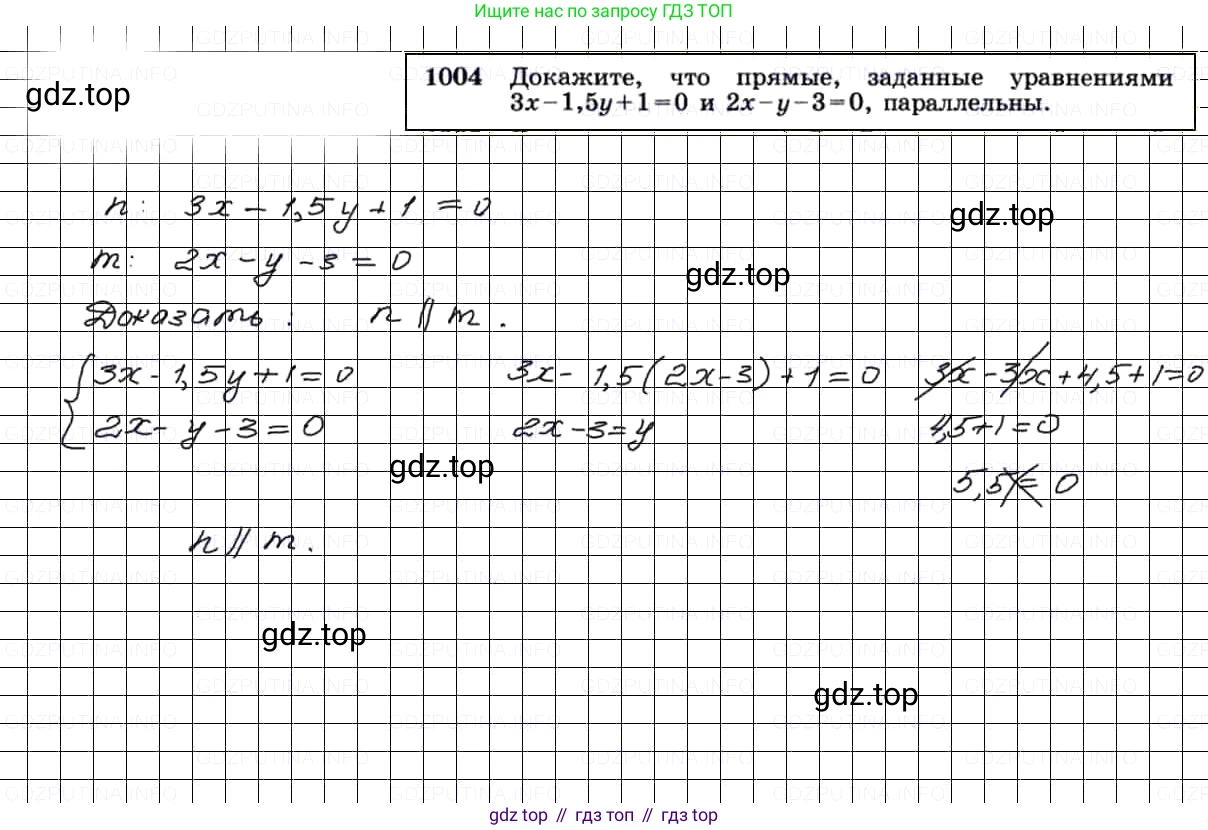 Ищите нас по запросу ГДЗ ТОП
1004 Докажите, что прямые, заданные уравнениями
3x−1,5y+1=0 и 2x−y−3=0, параллельны.
gdz.top
n: 3x − 1,5y + 1 = 0
gdz.top
m: 2x − y − 3 = 0
gdz.top
Доказать: n || m.
{ 3x − 1,5y + 1 = 0 3x − 1,5(2x−3) + 1 = 0 3x − 3x + 4,5 + 1 = 0
2x − y − 3 = 0 2x − 3 = y 4,5 + 1 = 0
gdz.top
5,5 ≠ 0
n || m.
gdz.top
gdz.top
gdz top // гдз топ // гдз top
GDZPUTINA.INFO